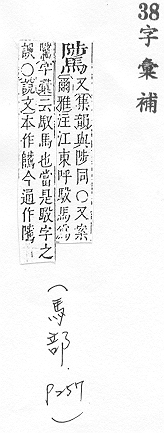 38字彙補
騭又集韻與陟同〇又案
爾雅注江東呼駁馬爲
騭字彙云馭馬也當是駁字之
誤〇說文本作騭今通作隲
(馬部. P257)